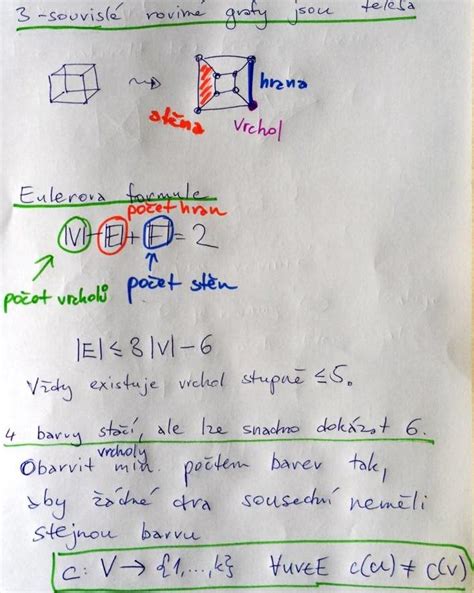 3-souvislé rovinné grafy jsou tělesa
hrana
stěna
vrchol
Eulerova formule
počet hran
|V|-|E|+|F|=2
počet vrcholů
počet stěn
|E| ≤ 3|V|-6
Vždy existuje vrchol stupně ≤5.
4 barvy stačí, ale lze snadno dokázat 6.
vrcholy
Obarvit min. počtem barev tak,
aby žádné dva sousední neměli
stejnou barvu
c: V → {1,...,k} ∀uv∈E c(u) ≠ c(v)